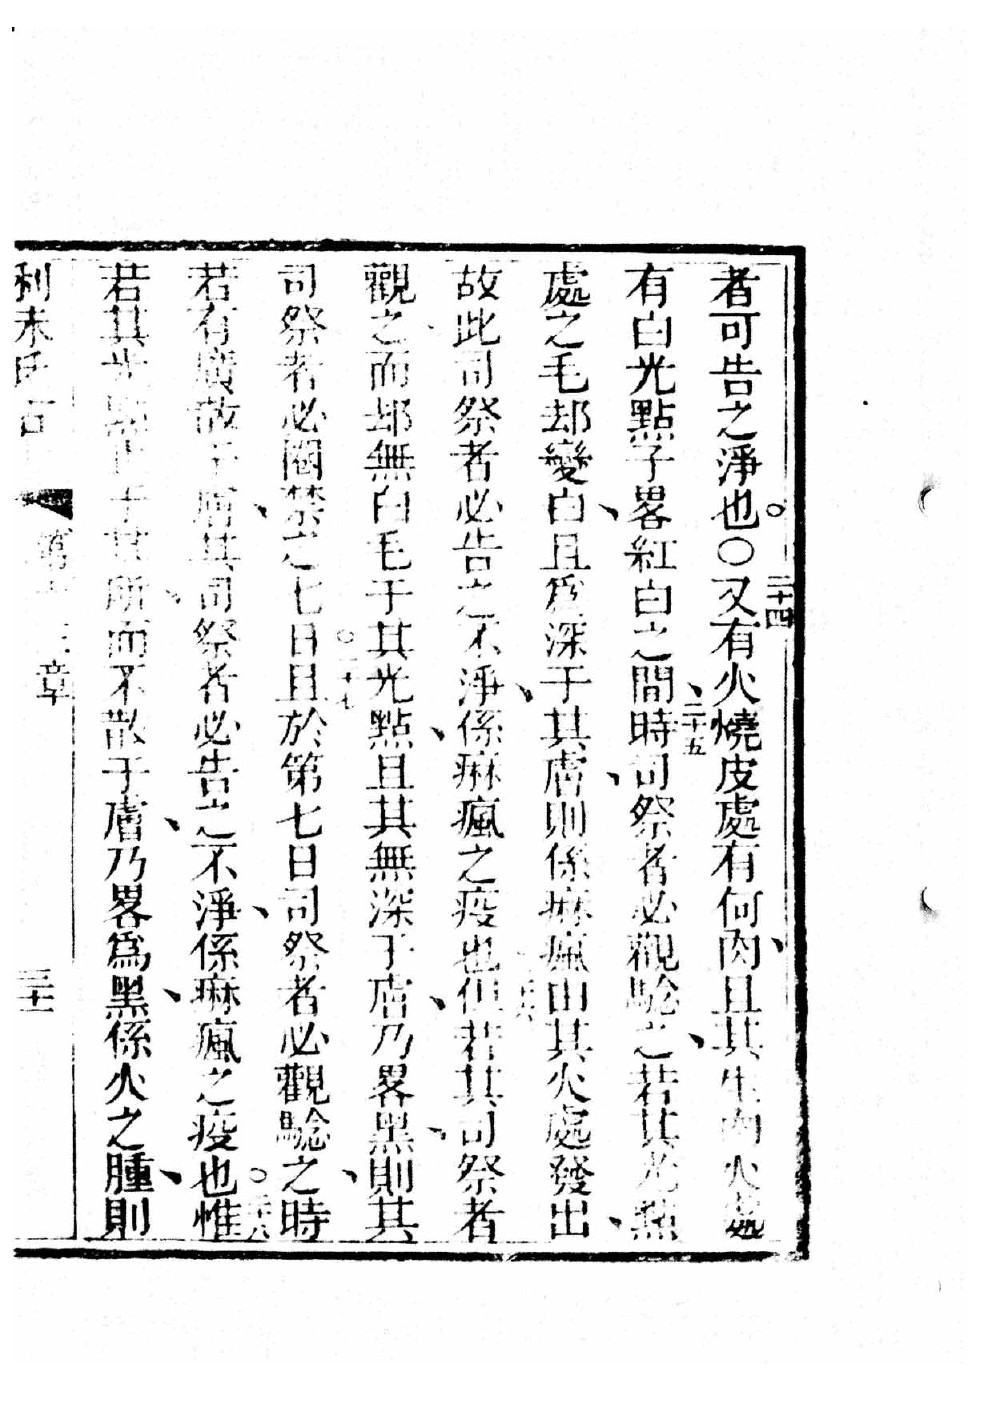 者可告之淨也○二十四又有火燒皮處有何肉且其生肉火處
有白光點子畧紅白之間二十五時司祭者必觀騐之若其光點
處之毛却變白且為深于其膚則係痳瘋由其火處發出
故此司祭者必告之不淨係痳瘋之疫也二十六但若其司祭者
觀之而却無白毛于其光點且其無深于膚乃畧黑則其
司祭者必閣禁之七日二十七且於第七日司祭者必觀騐之時
若有廣散于膚其司祭者必告之不淨係痳瘋之疫也二十八惟
若其光點在于其所而不散于膚乃畧為黑係火之腫則
利未氏古
第十三章
三十一